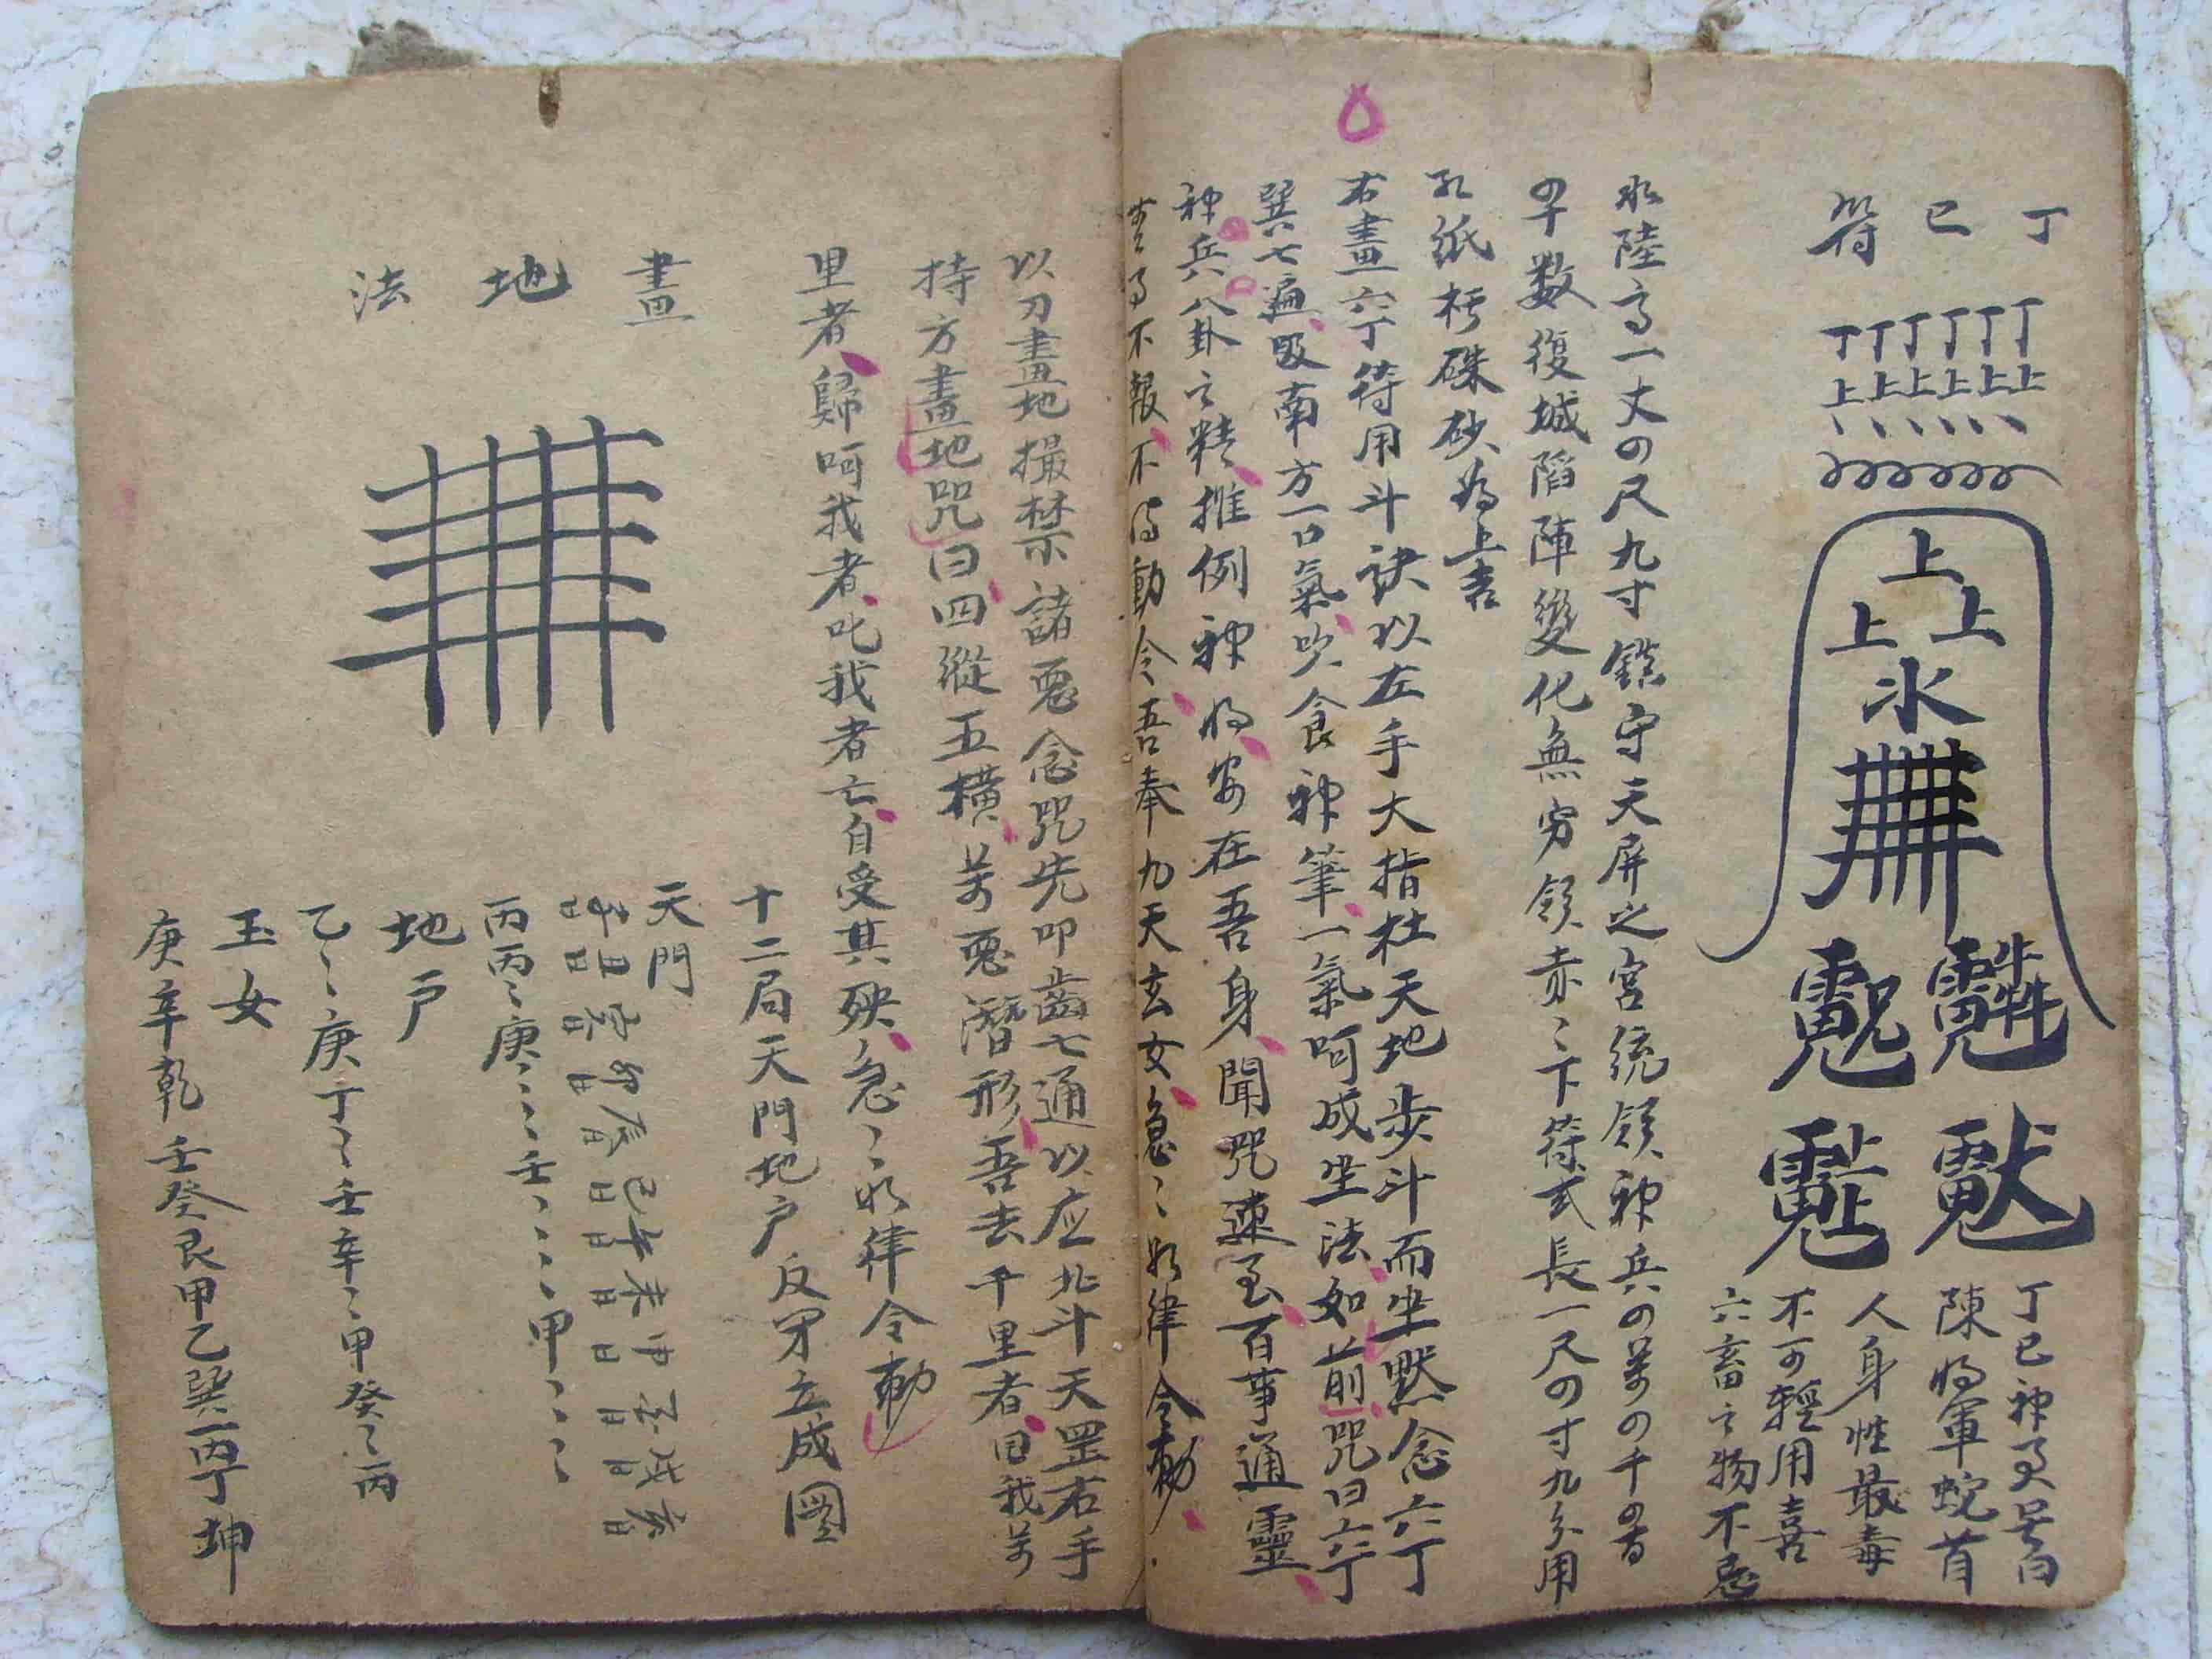 丁巳符
丁丁丁丁丁丁
上上上上上上
上
上上
水
丁巳神
陳将軍蛇首
人身性最毒
不可輕用喜
六畜之物不忌
水陸高一丈の尺九寸鎮守天屏之宮統領神兵の萬の千の百
の十数復城陷陣變化無穷領赤〻下符式長一尺の寸九分用
紙硃砂為上吉
右畫六丁符用斗訣以左手大指杜天地步斗而坐默念六丁
巽七遍吸南方一口氣吹食神筆一氣呵成坐法如前咒曰六丁
神兵八卦之精推例神将安在吾身聞咒速至百事通靈
不報不得動令吾奉九天玄女急〻如律令勅
以刀畫地撮禁諸惡念咒先叩齒七通以应北斗天罡右手
持方畫地咒曰四縱五橫萬惡潛形吾去千里者回我萬
里者歸呵我者叱我者亡自受其殃急〻如律令勅
畫地法
十二局天門地户反牙立成圖
天門
子日丑日寅日卯日辰日巳日午日未日申日酉日戌日亥日
丙丙丙〻庚〻〻壬〻〻〻甲〻〻〻
地户
乙〻〻庚丁〻壬辛〻甲癸〻丙
玉女
庚辛乾壬癸艮甲乙巽丙丁坤